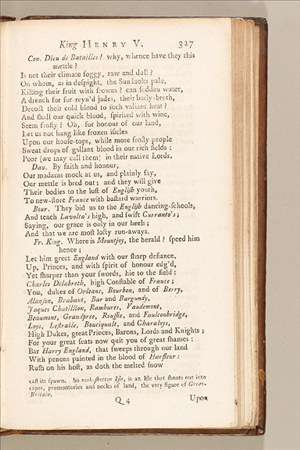 King HENRY V. 327
Con. Dieu de Batailles! why, whence have they this
mettle?
Is not their climate foggy, raw and dull?
On whom, as in despight, the Sun looks pale,
Killing their fruit with frowns? can sodden water,
A drench for sur-reyn'd jades, their barly-broth,
Decoct their cold blood to such valiant heat?
And shall our quick blood, spirited with wine,
Seem frosty? Oh, for honour of our land,
Let us not hang like frozen isicles
Upon our house-tops, while more frosty people
Sweat drops of gallant blood in our rich fields:
Poor (we may call them) in their native Lords.
Dau. By faith and honour,
Our madams mock at us, and plainly say,
Our mettle is bred out; and they will give
Their bodies to the lust of English youth,
To new-store France with bastard warriors.
Bour. They bid us to the English dancing-schools,
And teach Lavolta's high, and swift Curranto's;
Saying, our grace is only in our heels;
And that we are most lofty run-aways.
Fr. King. Where is Mountjoy, the herald? speed him
hence;
Let him greet England with our sharp defiance.
Up, Princes, and with spirit of honour edg'd,
Yet sharper than your swords, hie to the field:
Charles Delabreth, high Constable of France;
You, dukes of Orleans, Bourbon, and of Berry,
Alanson, Brabant, Bar and Burgundy,
Jaques Chatillion, Rambures, Vaudemont,
Beaumont, Grandpree, Roussie, and Faulconbridge,
Loys, Lestraile, Bouciqualt, and Charaloys,
High Dukes, great Princes, Barons, Lords and Knights;
For your great seats now quit you of great shames:
Bar Harry England, that sweeps through our land
With penons painted in the blood of Harfleur:
Rush on his host, as doth the melted snow
vast its spawn. So nook-shotten Isle, is an Isle that shoots out into
capes, promontories and necks of land, the very figure of Great-
Britain.
Q 4 Upon